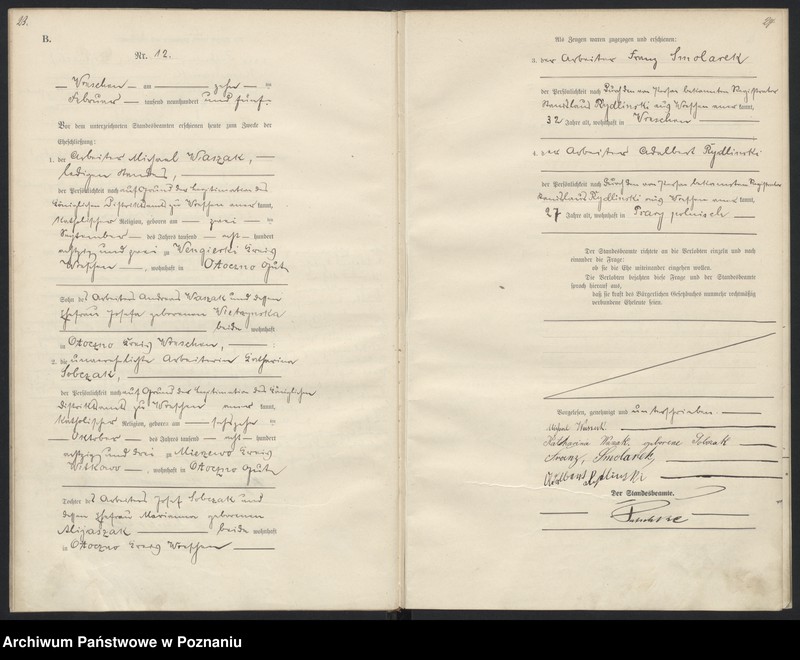 B.
Nr. 12.
Wreschen am zehnten
Februar tausend neunhundert und fünf.
Vor dem unterzeichneten Standesbeamten erschienen heute zum Zwecke der
Eheschließung:
1. der Arbeiter Michael Waszak,
ledigen Standes,
der Persönlichkeit nach auf Grund der Legitimation des
Königlichen Distriktsamts zu Wreschen anerkannt,
katholischer Religion, geboren am zwei
September des Jahres tausend acht hundert
achtzig und zwei zu Wengierki Kreis
Wreschen, wohnhaft in Ottoczno Gut
Sohn des Arbeiters Andreas Waszak und dessen
Ehefrau Josefa geborenen
beide wohnhaft
in Ottoczno Kreis Wreschen,
2. die unverehelichte Arbeiterin Katharina
Sobczak,
der Persönlichkeit nach auf Grund der Legitimation des Königlichen
Distriktsamts zu Wreschen anerkannt,
katholischer Religion, geboren am sechszehn ten
Oktober des Jahres tausend acht hundert
achtzig und drei zu Mierzewo Kreis
Witkowo, wohnhaft in Ottoczno Gut
Tochter des Arbeiters Josef Sobczak und
dessen Ehefrau Marianna geborenen
beide wohnhaft
in Ottoczno Kreis Wreschen
Als Zeugen waren zugezogen und erschienen:
3. der Arbeiter Franz Smolarek
der Persönlichkeit nach durch den von Person bekannten Registrator
Stanislaus Rydlinski aus Wreschen anerkannt,
32 Jahre alt, wohnhaft in Wreschen
4. der Arbeiter Adalbert Rydlinski
der Persönlichkeit nach durch den von Person bekannten Registrator
Stanislaus Rydlinski aus Wreschen anerkannt,
27 Jahre alt, wohnhaft in
Der Standesbeamte richtete an die Verlobten einzeln und nach
einander die Frage:
ob sie die Ehe miteinander eingehen wollen.
Die Verlobten bejahten diese Frage und der Standesbeamte
sprach hierauf aus,
daß sie kraft des Bürgerlichen Gesetzbuchs nunmehr rechtmäßig
verbundene Eheleute seien.
Vorgelesen, genehmigt und unterschrieben.
Michael Waszak
Katharina Waszak, geborene Sobczak
Franz, Smolarek,
Rydlinski
Der Standesbeamte.
Archiwum Państwowe w Poznaniu